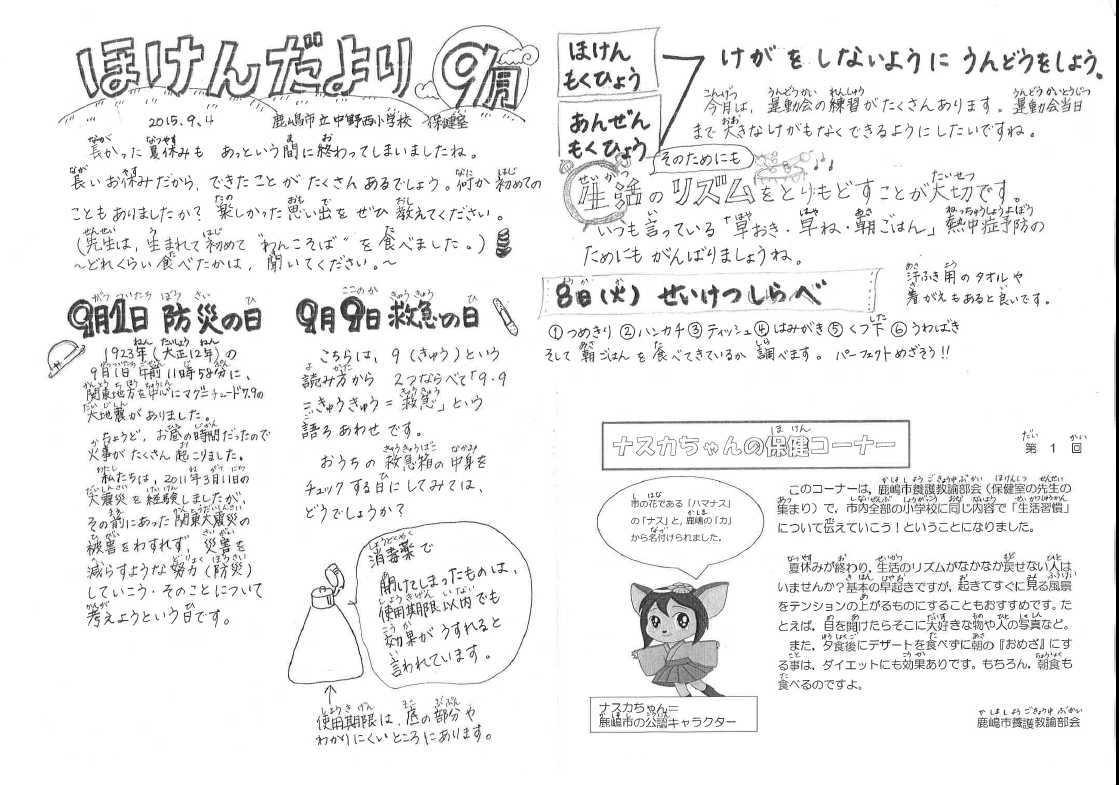 ほけんだより 9月
2015.9.4 鹿嶋市立中野西小学校 保健室
長かった夏休みも あっという間に終わってしまいましたね。
長いお休みだから、できたことが たくさんあるでしょう。何か初めての
こともありましたか？ 楽しかった思い出を ぜひ 教えてください。
（先生は、生まれて初めて"わんこそば"を食べました。）
～どれくらい食べたかは、聞いてください。～
9月1日 防災の日
1923年（大正12年）の
9月1日 午前11時58分に、
関東地方を中心にマグニチュード7.9の
大地震がありました。
ちょうど、お昼の時間だったので
火事がたくさん起こりました。
私たちは、2011年3月11日の
大震災を経験しましたが、
その前にあった関東大震災の
被害をわすれず、災害を
減らすような努力（防災）
していこう・そのことについて
考えようという日です。
9月9日 救急の日
こちらは、9（きゅう）という
読み方から 2つならべて「9・9
＝きゅうきゅう＝救急」という
語ろあわせです。
おうちの 救急箱の中身を
チェックする日にしてみては、
どうでしょうか？
消毒薬で
開けてしまったものは、
使用期限以内でも
効果がうすれると
言われています。
使用期限は、底の部分や
わかりにくいところにあります。
ほけん
もくひょう
あんぜん
もくひょう
けがをしないように うんどうをしよう。
今月は、運動会の練習がたくさんあります。運動会当日
まで大きなけがもなくできるようにしたいですね。
そのためにも
生活のリズムをとりもどすことが大切です。
いつも言っている「早おき・早ね・朝ごはん」熱中症予防の
ためにもがんばりましょうね。
汗ふき用のタオルや
着がえもあると良いです。
8日（火）せいけつしらべ
①つめきり ②ハンカチ ③ティッシュ ④はみがき ⑤くつ下 ⑥うわばき
そして 朝ごはんを食べてきているか 調べます。パーフェクトめざそう!!
ナスカちゃんの保健コーナー
第 1 回
市の花である「ハマナス」
の「ナス」と，鹿嶋の「カ」
から名付けられました。
ナスカちゃん＝
鹿嶋市の公認キャラクター
このコーナーは，鹿嶋市養護教諭部会（保健室の先生の
集まり）で，市内全部の小学校に同じ内容で「生活習慣」
について伝えていこう！ということになりました。
夏休みが終わり，生活のリズムがなかなか戻せない人は
いませんか？基本の早起きですが，起きてすぐに見る風景
をテンションの上がるものにすることもおすすめです。た
とえば，目を開けたらそこに大好きな物や人の写真など。
また，夕食後にデザートを食べずに朝の『おめざ』にす
る事は，ダイエットにも効果ありです。もちろん，朝食も
食べるのですよ。
鹿嶋市養護教諭部会